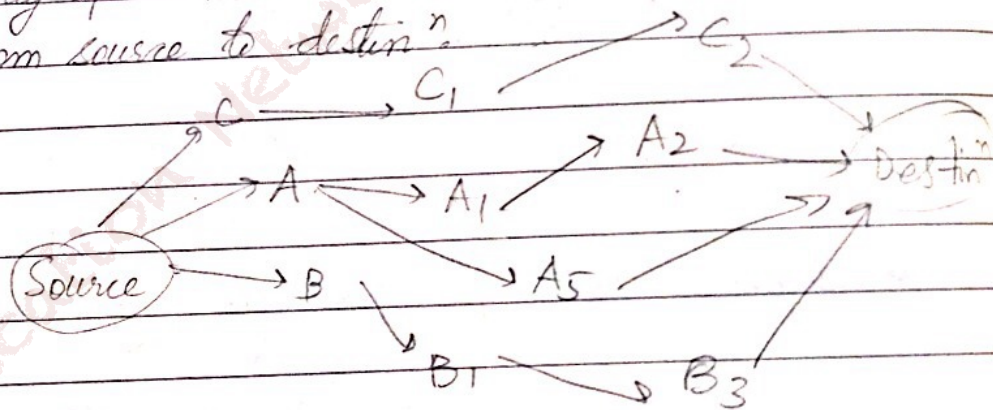 source to destinⁿ.
C C₁ C₂
A A₁ A₂ Destinⁿ
Source B A₅
B₁ B₃